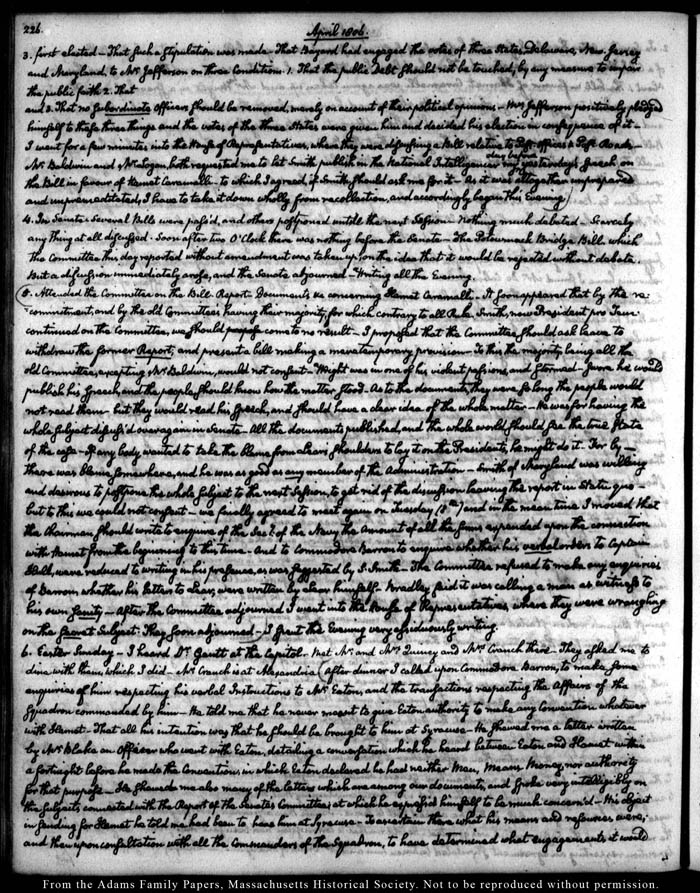 226.
April 1806.
3. first elected – That such a stipulation was made – That Bayard had engaged the votes of three States, Delaware, New Jersey
and Maryland, to Mr Jefferson on three Conditions. 1. That the public Debt should not be touched, by any measure to impair
the public faith 2. That
and 3. That no Subordinate Officers should be removed, merely on account of their political opinions – Mr Jefferson positively pledged
himself to these three things and the votes of the three States were given him and decided his election in consequence of it –
I went for a few minutes into the House of Representatives, where they were discussing a Bill relative to Post-offices & Post Roads –
Mr Baldwin and Mr Logan, both requested me to let Smith publish in the National Intelligencer my yesterday's Speech on
the Bill in favour of Hamet Caramalli – to which I agreed, if Smith should ask me for it – As it was altogether unprepared
and unpremeditated, I have to take it down wholly from recollection, and accordingly began this Evening.
4. In Senate Several Bills were pass'd, and others postponed untill the next Session – Nothing much debated – Scarcely
any thing at all discussed. Soon after two O'Clock there was nothing before the Senate – The Potowmack Bridge Bill which
the Committee this day reported without amendment was taken up, on the idea that it would be rejected without debate.
But a discussion immediately arose, and the Senate adjourned – Writing all the Evening.
5. Attended the Committee on the Bill, Report – Documents &c concerning Hamet Caramalli. It soon appeared that by the re-
commitment, and by the old Committees having their majority, for which contrary to all Rule Smith, now President pro Tem:
continued on the Committee, we should come to no result – I proposed that the Committee should ask leave to
withdraw the former Report, and present a bill making a mere temporary provision – To this the majority, being all the
old Committee, excepting Mr Baldwin, would not consent – Wright was in one of his violent passions, and stormed – Swore he would
publish his Speech, and the people should know how the matter stood. As to the documents, they were so long the people would
not read them – but they would read his Speech, and should have a clear idea of the whole matter – He was for having the
whole subject discuss'd over again in Senate – All the documents published, and the whole world should see the true State
of the case – If any body wanted to take the blame from Lear's shoulders to lay it on the President's, he might do it – For by
there was blame somewhere, and he was as good as any member of the Administration – Smith of Maryland was willing
and desirous to postpone the whole Subject to the next Session, to get rid of the discussion leaving the report in statu quo –
but to this we could not consent – we finally agreed to meet again on Tuesday (8th) and in the mean time I moved that
the Chairman should write to enquire of the Secy of the Navy the Amount of all the sums expended upon the connection
with Hamet from the beginning to this time – And to Commodore Barron to enquire whether his verbal orders to Captain
Hull, were reduced to writing in his presence, as was suggested by S. Smith. The Committee refused to make any enquiries
of Barron, whether his letters to Lear, were written by Lear himself – Bradley said it was calling a man as witness to
his own – After the Committee adjourned I went into the House of Representatives where they were wrangling
on the Secret Subject. They soon adjourned – I spent the Evening very assiduously writing.
6. Easter Sunday – I heard Dr Gantt at the Capitol. Met Mr and Mrs Quincy and Mrs Cranch there – They asked me to
dine with them, which I did – Mr Cranch is at Alexandria (After dinner I called upon Commodore Barron, to make some
enquiries of him respecting his verbal Instructions to Mr Eaton, and the transactions respecting the Affairs of the
Squadron commanded by him – He told me that he never meant to give Eaton authority to make any Convention whatever
with Hamet – That all his intention was that he should be brought to him at Syracuse – He shewed me a letter written
by Mr Blake an Officer who went with Eaton, detailing a conversation which he heard between Eaton and Hamet within
a fortnight before he made the Convention, in which Eaton declared he had neither Men, Means, Money, nor authority
for that purpose – He shewed me also many of the letters which are among our documents, and spoke very intelligibly on
the subjects connected with the Report of the Senates Committee; at which he express'd himself to be much concern'd – His object
in sending for Hamet he told me, had been to have him at Syracuse – To ascertain there what his means and resources were;
and then upon consultation with all the Commanders of the Squadron, to have determined what engagements it would
From the Adams Family Papers, Massachusetts Historical Society. Not to be reproduced without permission.